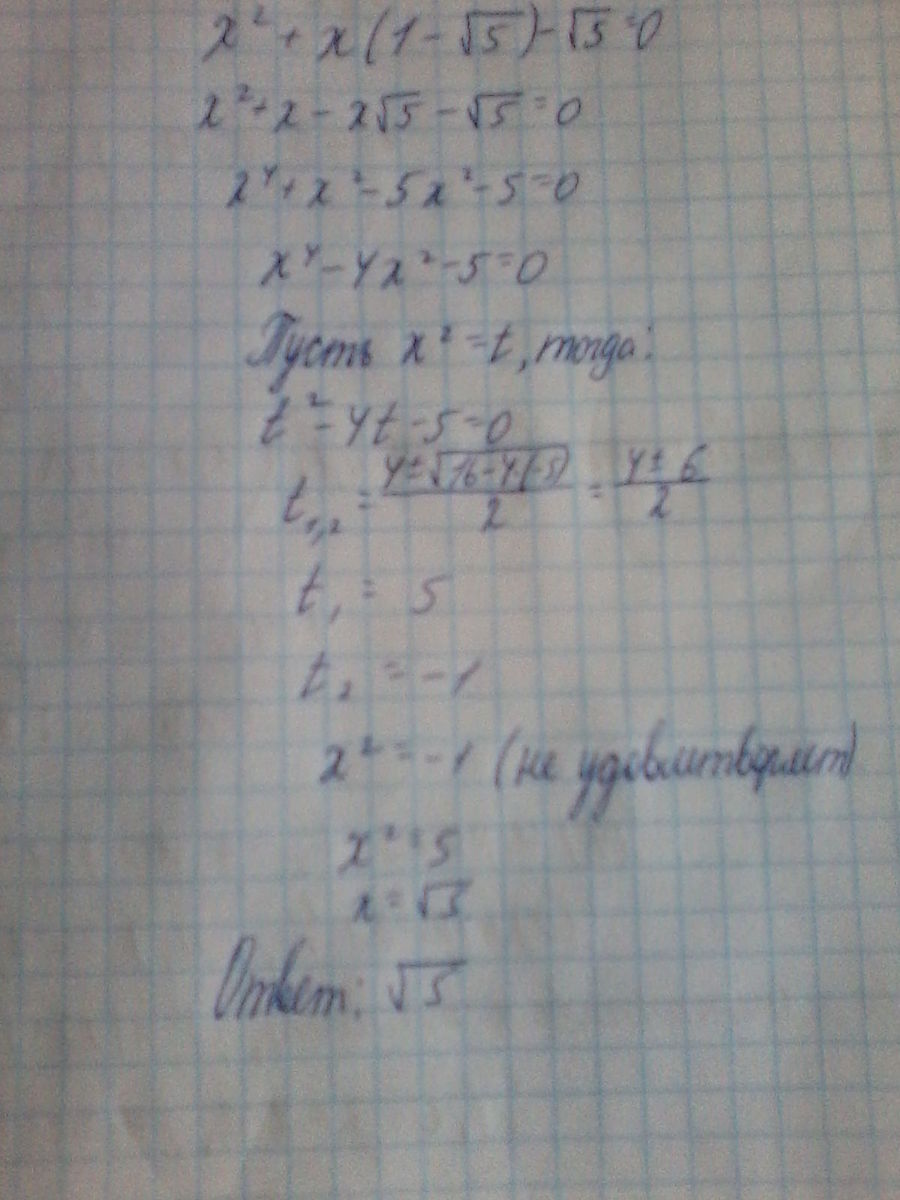 x² + x(1 - √5) - √5 = 0
x² + x - x√5 - √5 = 0
x⁴ + x² - 5x² - 5 = 0
x⁴ - 4x² - 5 = 0
Пусть x² = t, тогда:
t² - 4t - 5 = 0
t₁,₂ = (4 ± √(16 - 4(-5)))/2 = (4 ± 6)/2
t₁ = 5
t₂ = -1
x² = -1 (не удовлетворяет)
x² = 5
x = √5
Ответ: √5